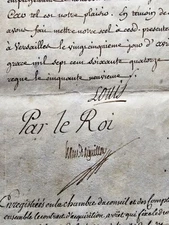 Car tel est notre plaisir. En temoin de
avons fait mettre notre scel à ces d. present
à Versailles le vingt cinquieme jour d'avr
grace mil sept cent soixante quatorze
regne le cinquante neuvieme
Louis
Par le Roi
Enregistrées en la chambre du conseil et des Comptes
ensemble le contrat d'acquisition